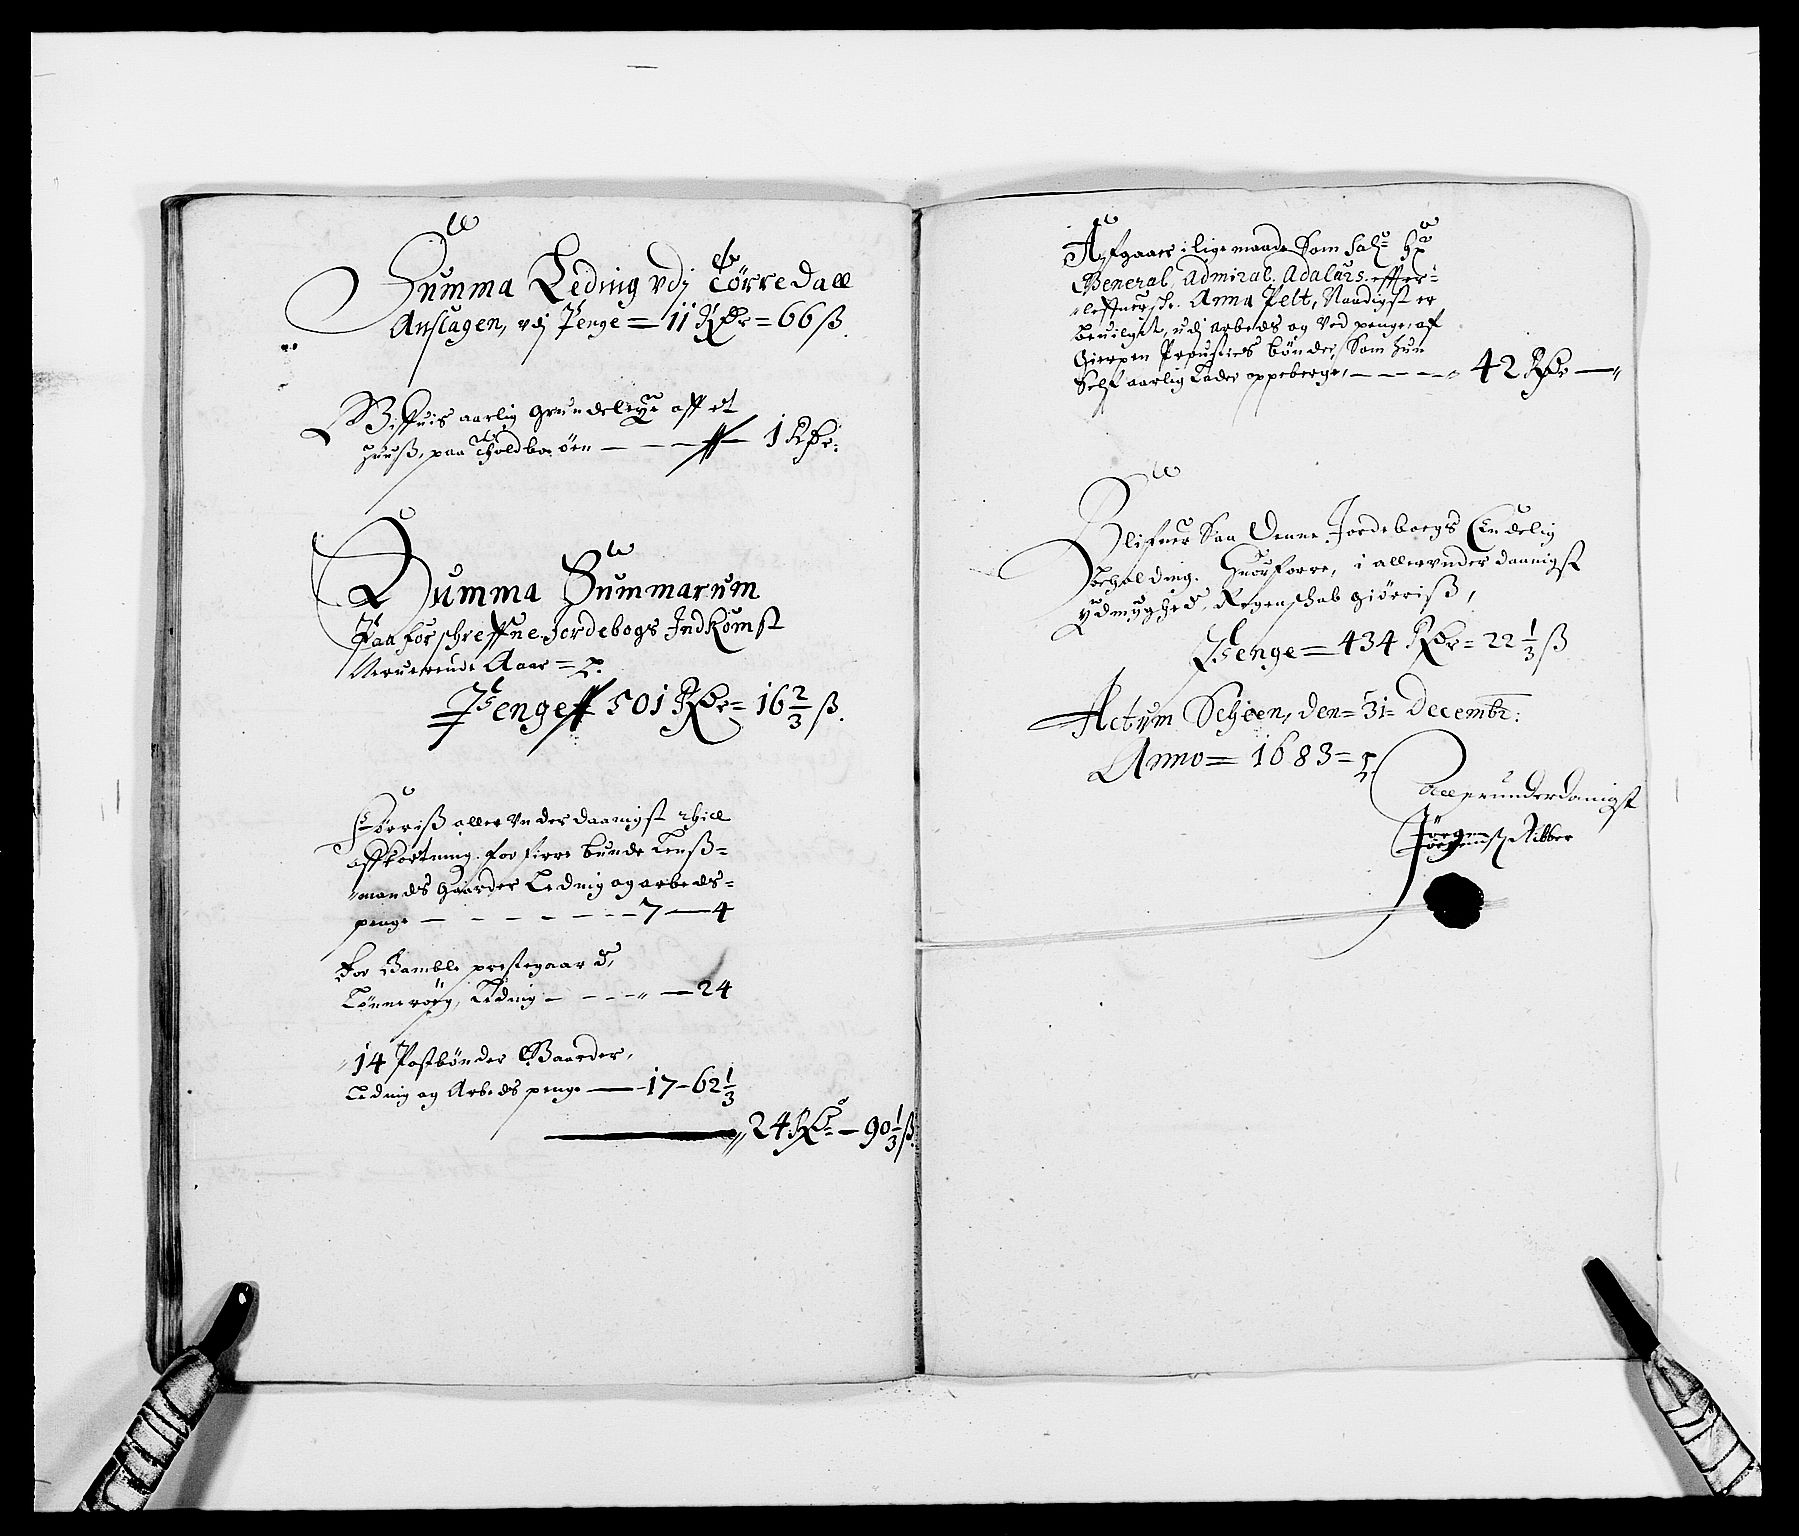 Summa Leding vdj Tørredall
Anslagen, vdj Penge = 11 Rdr = 66 ß.
Wisßuis aarlig grundeleye aff et
Huuß, paa Tholdboe øen — — — 1 Rdr:
Summa Summarum
Paa forschreffne Jordebogs Indkomst
Neruerende Aar =
Penge 501 Rdr = 16 2/3 ß.
Førriß allervnderdaanigst thill
affkortning. for fierre bunde Lenß=
mands Gaarder Leding og arbeds=
penge — — — — — — 7 — 4
For Bamble prestegaard,
Tønnerøeg, Leding — — — — 24
14 Postbønder Gaarder,
Leding og Arbeds penge — 17 – 62 1/3
24 Rdr — 90 1/3 ß.
Afgaar i lige maade Som Sal: Hr
General Admiral Adalars. effter=
leffuersche. Anna Pelt, Naadigst er
beuilget, udj Arbeds og Ved penge, af
Gierpen Prousties bønder, Som hun
Self aarlig Lader oppeberge, — — — 42 Rdr —
Blifuer Saa Denne Jordebogs Endelig
beholding. Huorforre, i allervnderdaanigst
ydmyghed, Regenschab giørriß,
Penge = 434 Rdr = 22 1/3 ß
Actum Scheen, den = 31 = Decembr:
Anno = 1683 =
Allerunderdanigst
Jørgen Ribber